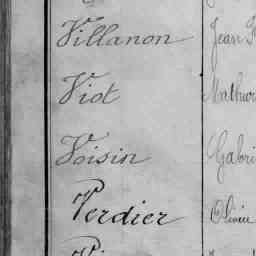 Villanon Jean
Viot Mathur
Voisin Gabri
Verdier Olivie